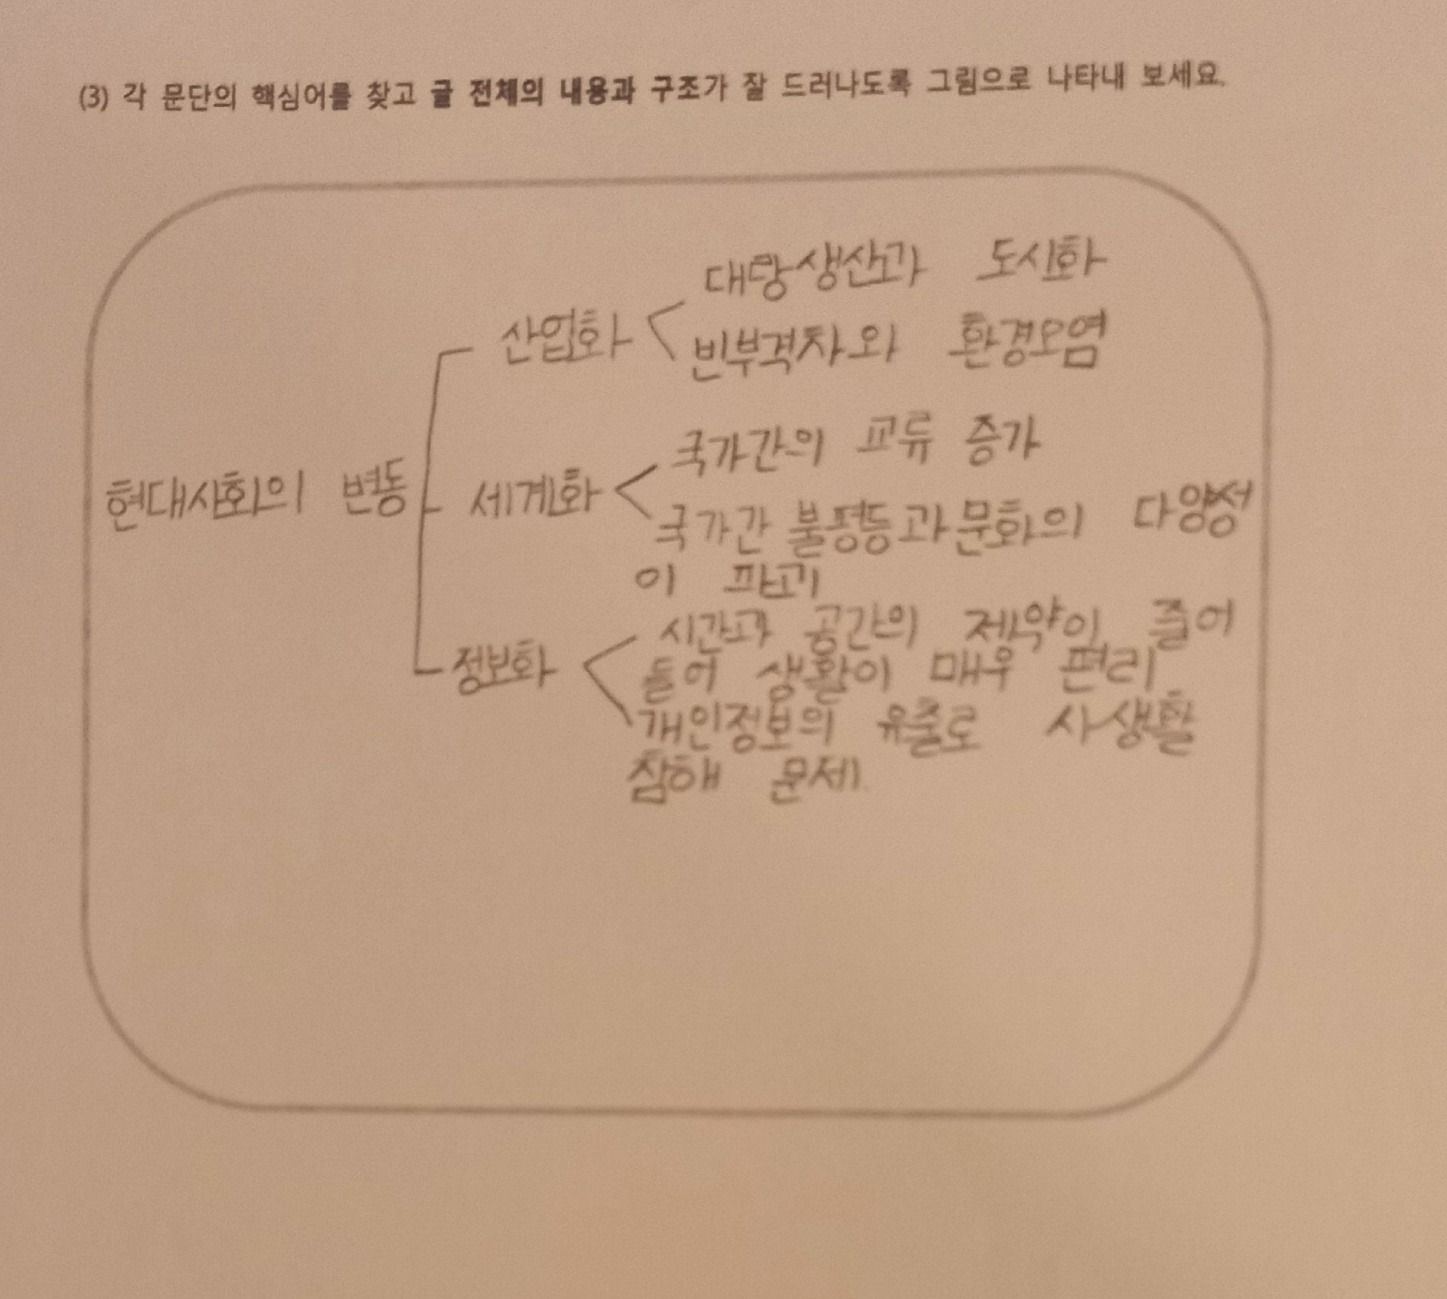 (3) 각 문단의 핵심어를 찾고 글 전체의 내용과 구조가 잘 드러나도록 그림으로 나타내 보세요.
대량생산과 도시화
산업화
빈부격차와 환경오염
국가간의 교류 증가
현대사회의 변동
세계화
국가간 불평등과 문화의 다양성
이 파괴
시간과 공간의 제약이 줄어
정보화
들어 생활이 매우 편리
개인정보의 유출로 사생활
침해 문제